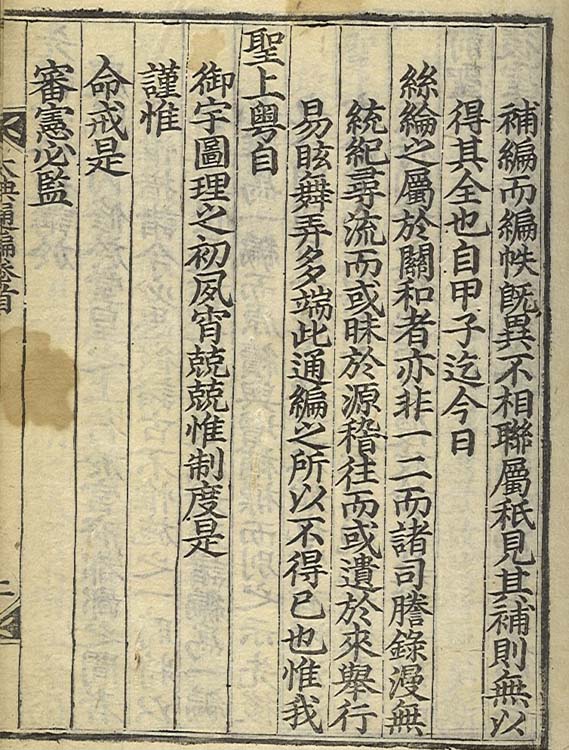 補編而編帙旣異不相聯屬秖見其補則無以
得其全也自甲子迄今日
絲綸之屬於關和者亦非一二而諸司謄錄漫無
統紀尋流而或昧於源稽往而或遺於來舉行
易眩舞弄多端此通編之所以不得已也惟我
聖上粤自
御宇圖理之初夙宵兢兢惟制度是
謹惟
命戒是
審憲必監
大典通編卷首